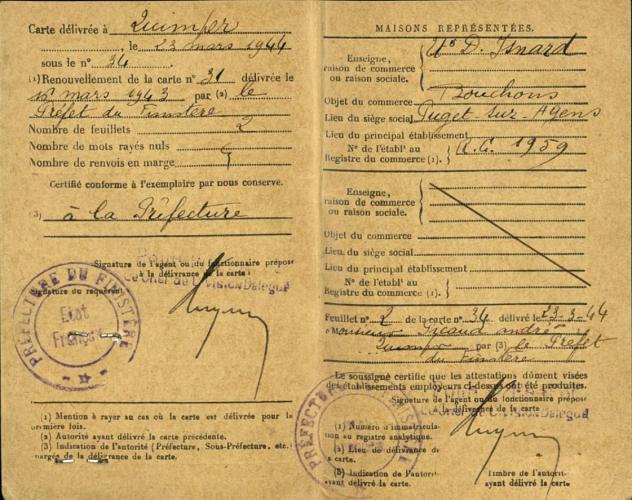 Carte délivrée à Quimper
, le 23 mars 1944
sous le n° 34.
(1) Renouvellement de la carte n° 31 délivrée le
15 mars 1943 par (2) le
Préfet du Finistère
Nombre de feuillets 2
Nombre de mots rayés nuls
Nombre de renvois en marge
Certifié conforme à l'exemplaire par nous conservé.
(3) à la Préfecture
Signature de l'agent ou du fonctionnaire préposé
à la délivrance de la carte :
Le Chef de Division Délégué
Signature du requérant
PRÉFECTURE DU FINISTÈRE
Etat
Français
(1) Mention à rayer au cas où la carte est délivrée pour la
première fois.
(2) Autorité ayant délivré la carte précédente.
(3) Indication de l'autorité (Préfecture, Sous-Préfecture, etc.
chargée de la délivrance de la carte.
MAISONS REPRÉSENTÉES.
Enseigne,
raison de commerce
ou raison sociale.
Ets D. Isnard
Objet du commerce Bouchons
Lieu du siège social Puget-sur-Agens
Lieu du principal établissement
N° de l'établ au
Registre du commerce (1).
R.C. 1959
Enseigne,
raison de commerce
ou raison sociale.
Objet du commerce
Lieu du siège social
Lieu du principal établissement
N° de l'établ au
Registre du commerce (1).
Feuillet n° 2 de la carte n° 34 délivré le 23-3-44
à Monsieur André
Quimper par (3) le Préfet
du Finistère
Le soussigné certifie que les attestations dûment visées
des établissements employeurs ci-dessus ont été produites.
Signature de l'agent ou du fonctionnaire préposé
à la délivrance de la carte :
Le Chef de Division Délégué
(1) Numéro d'immatricula-
tion au registre analytique.
(2) Lieu de délivrance de
la carte.
(3) Indication de l'autorité
ayant délivré la carte.
Timbre de l'autorité
ayant délivré la carte.
PRÉFECTURE